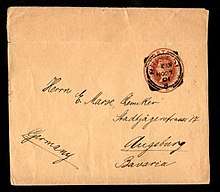 Herrn E. Marx, Chemiker
Stadtjägerstrasse 12
Augsburg
Bavaria
Germany